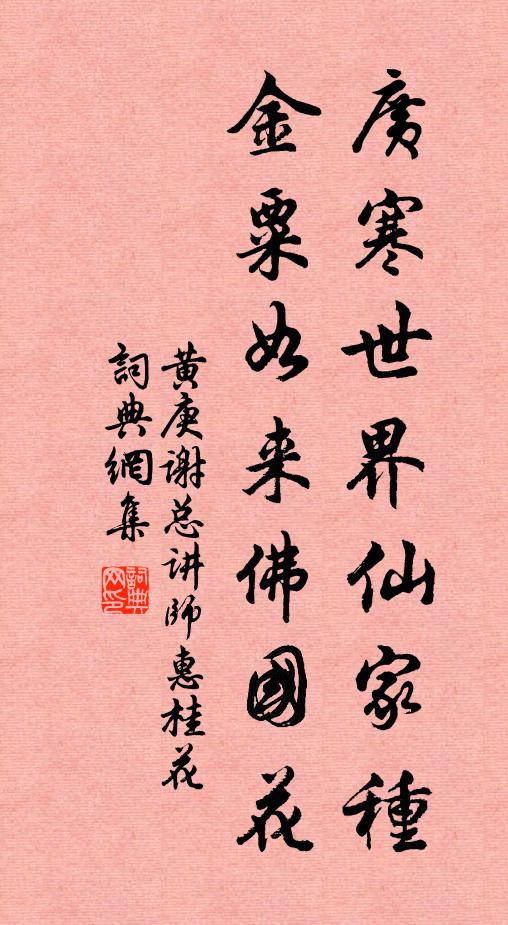 廣寒世界仙家種
金粟如来佛國花
黄庚谢总讲師惠桂花
詞典網集
詞典
网印